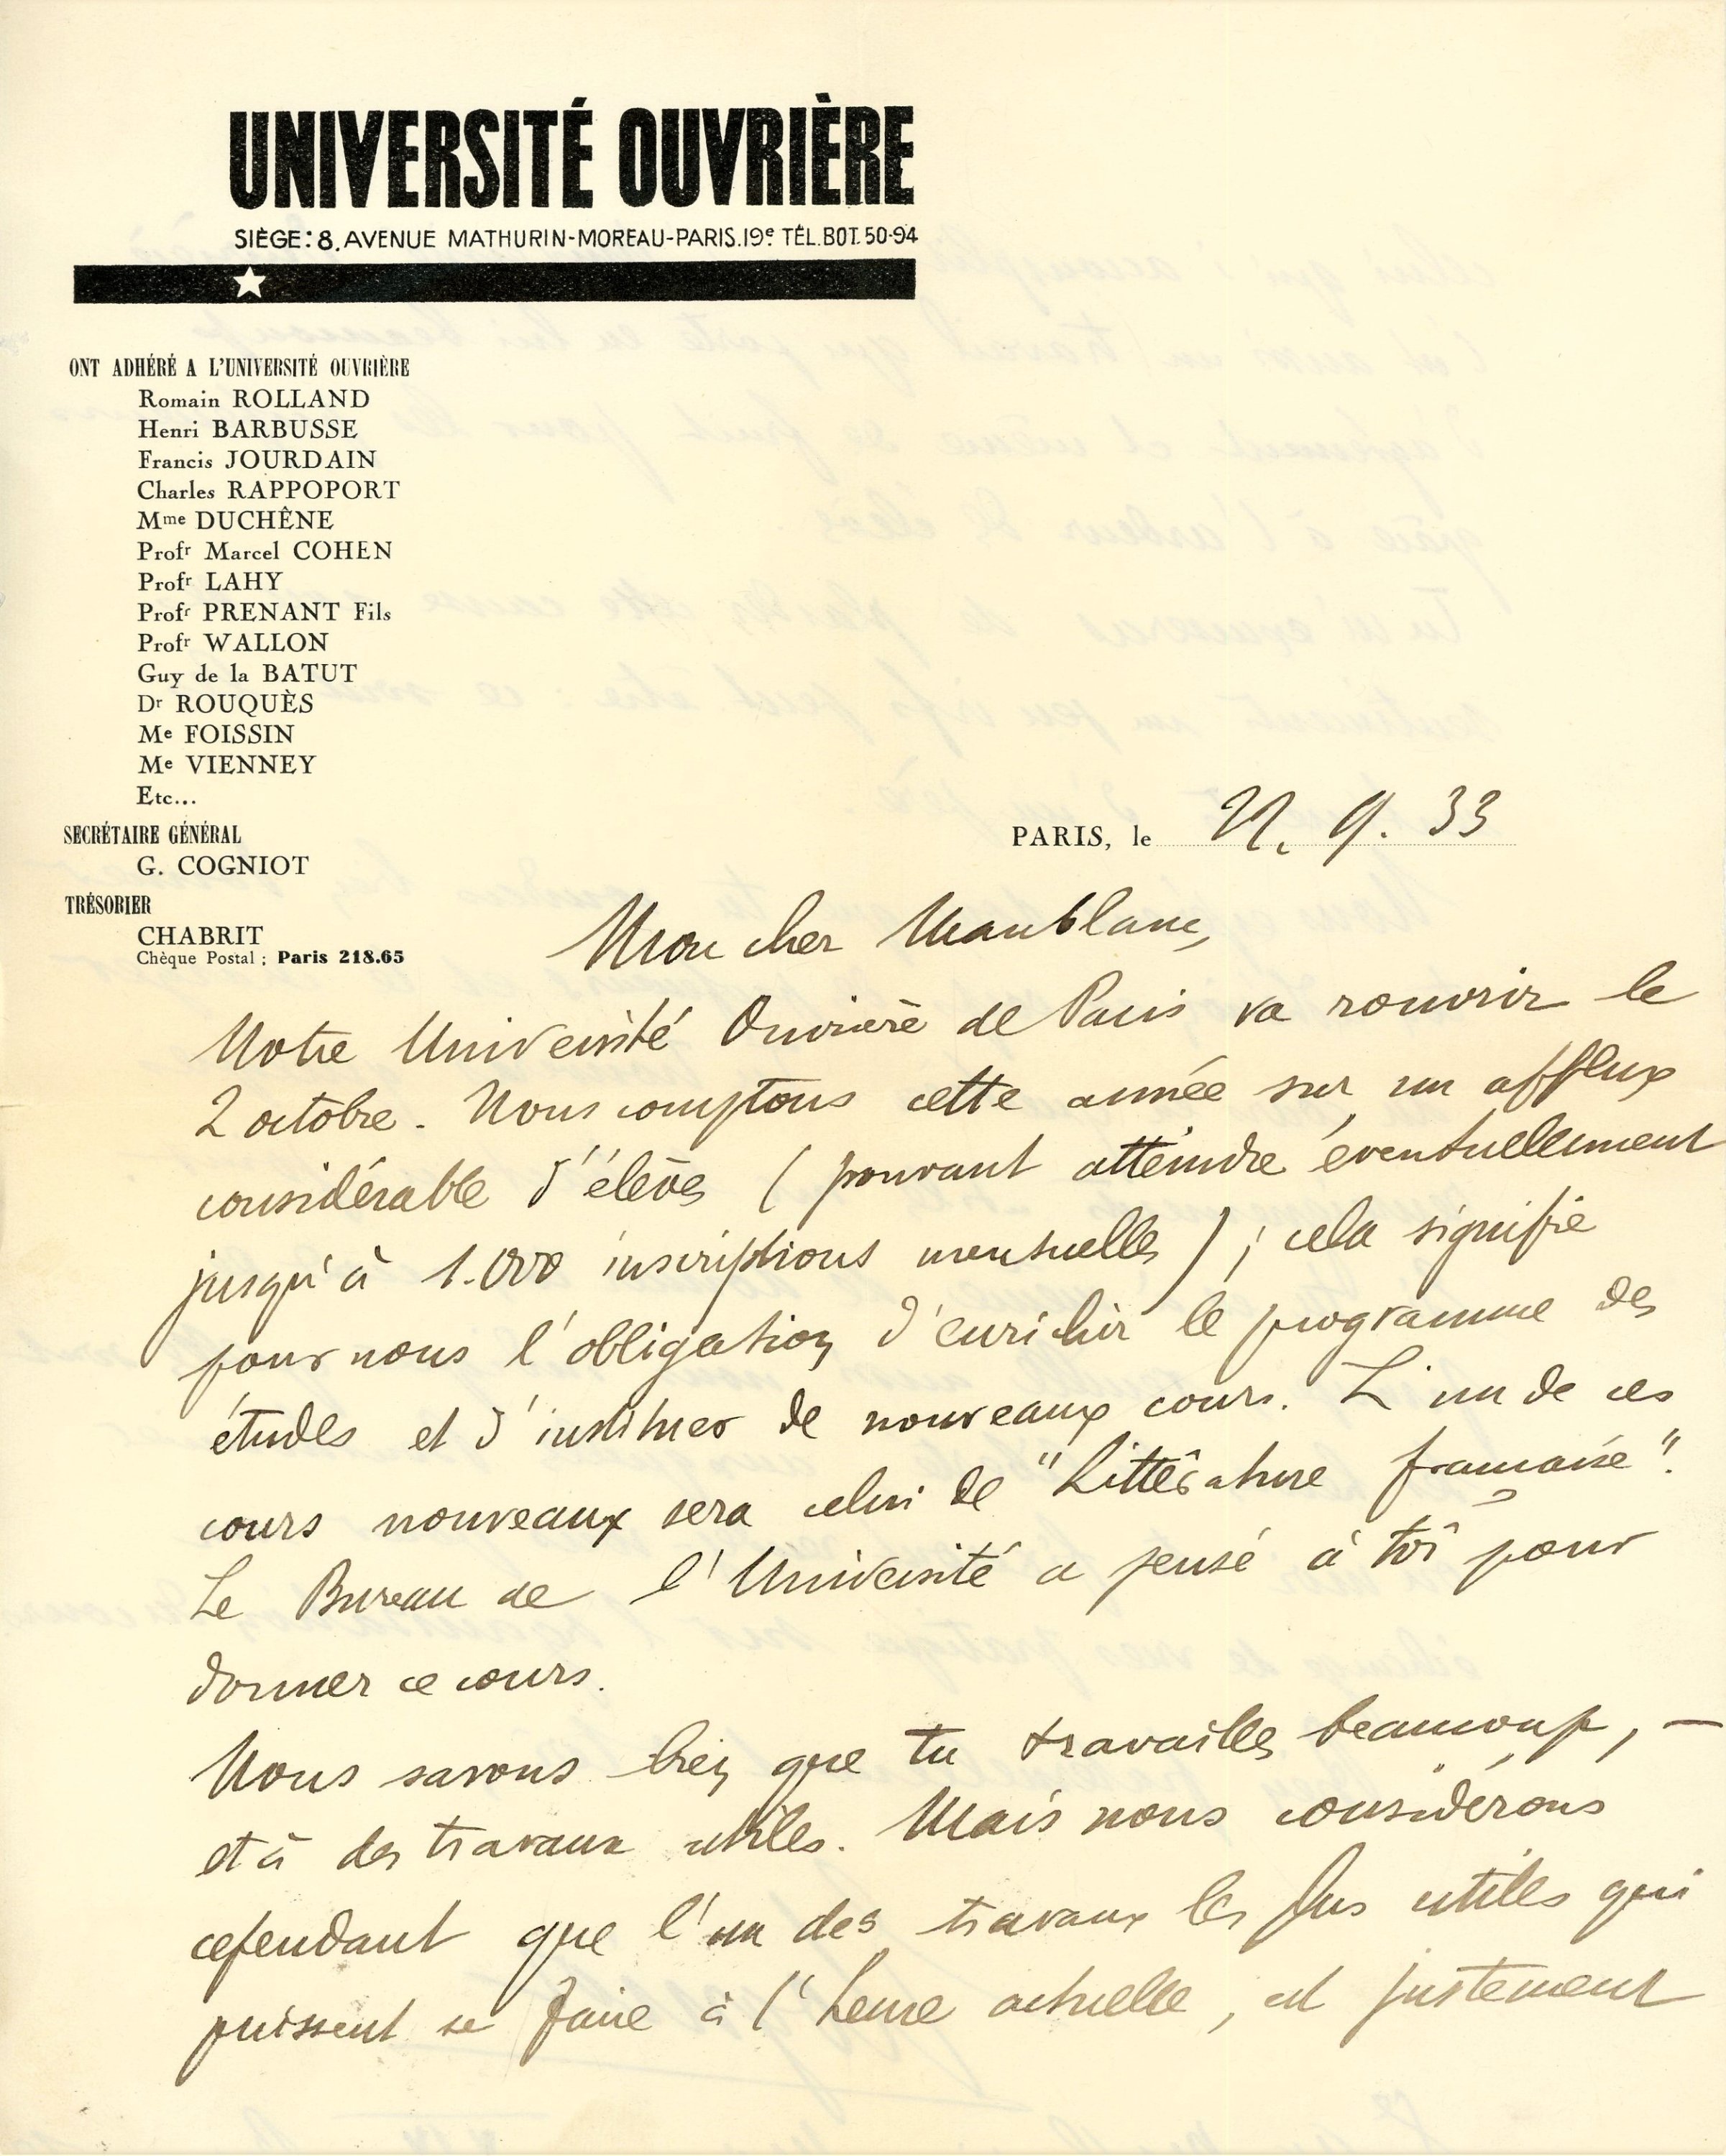 UNIVERSITÉ OUVRIÈRE
SIÈGE: 8. AVENUE MATHURIN-MOREAU-PARIS.19e TÉL.BOT. 50-94
ONT ADHÉRÉ A L'UNIVERSITÉ OUVRIÈRE
Romain ROLLAND
Henri BARBUSSE
Francis JOURDAIN
Charles RAPPOPORT
Mme DUCHÊNE
Profr Marcel COHEN
Profr LAHY
Profr PRENANT Fils
Profr WALLON
Guy de la BATUT
Dr ROUQUÈS
Me FOISSIN
Me VIENNEY
Etc...
SECRÉTAIRE GÉNÉRAL
G. COGNIOT
TRÉSORIER
CHABRIT
Chèque Postal : Paris 218.65
PARIS, le 22. 9. 33
Mon cher Maublanc,
Notre Université Ouvrière de Paris va rouvrir le
2 octobre. Nous comptons cette année sur un afflux
considérable d'élèves (pouvant atteindre éventuellement
jusqu'à 1.000 inscriptions mensuelles) ; cela signifie
pour nous l'obligation d'enrichir le programme des
études et d'instituer de nouveaux cours. L'un de ces
cours nouveaux sera celui de "Littérature française".
Le Bureau de l'Université a pensé à toi pour
donner ce cours.
Nous savons bien que tu travailles beaucoup, —
et à des travaux utiles. Mais nous considérons
cependant que l'un des travaux les plus utiles qui
puissent se faire à l'heure actuelle, est justement